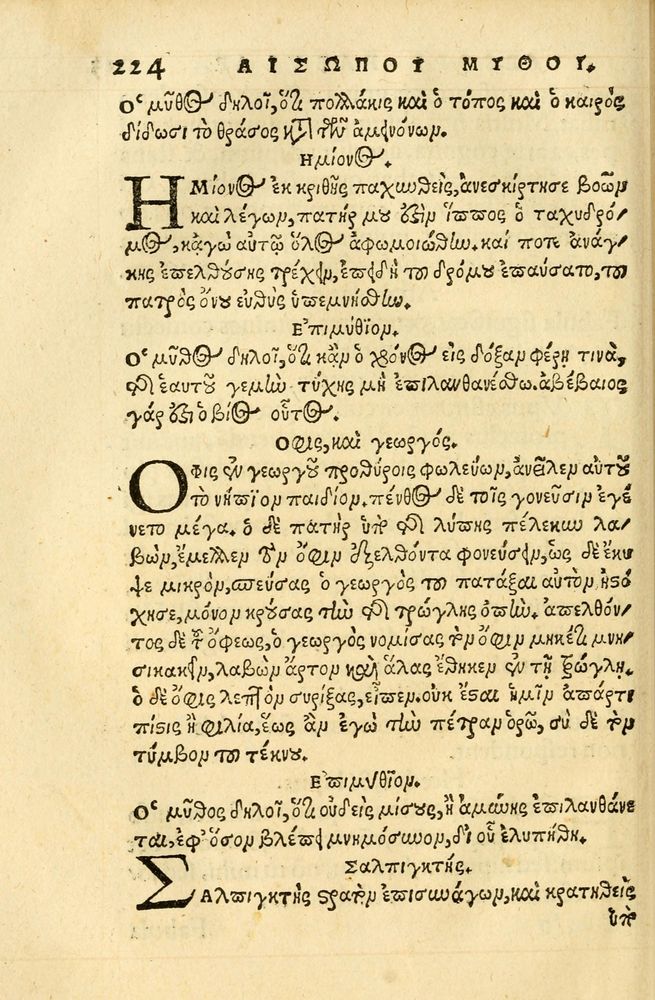 224 ΑΙΣΩΠΟΥ ΜΥΘΟΥ.
Ο μῦθος δηλοῖ, ὅτι πολλάκις καὶ ὁ τόπος καὶ ὁ καιρὸς
δίδωσι τὸ θράσος κατὰ τῶν ἀμεινόνων.
Ημίονος.
ΗΜίονος ἐκ κριθῆς παχυνθεὶς, ἀνεσκίρτησε βοῶν
καὶ λέγων, πατήρ μου ἐστὶν ἵππος ὁ ταχυδρό-
μος, κἀγὼ αὐτῷ ὅλος ἀφωμοιώθην. καί ποτε ἀνάγ-
κης ἐπελθούσης τρέχειν, ἐπειδὴ τοῦ δρόμου ἐπαύσατο, τοῦ
πατρὸς ὄνου εὐθὺς ὑπεμνήσθην.
Επιμύθιον.
Ο μῦθος δηλοῖ, ὅτι κἂν ὁ χρόνος εἰς δόξαν φέρῃ τινὰ,
τῆς ἑαυτοῦ γεμὼ τύχης μὴ ἐπιλανθανέσθω. ἀβέβαιος
γάρ ἐστιν ὁ βίος οὗτος.
Οφις, καὶ γεωργός.
ΟΦις ἐν γεωργοῦ προθύροις φωλεύων, ἀνεῖλεν αὐτοῦ
τὸ νήπιον παιδίον. πένθος δὲ τοῖς γονεῦσιν ἐγέ
νετο μέγα. ὁ δὲ πατὴρ ὑπὸ τῆς λύπης πέλεκυν λα-
βὼν, ἔμελλεν τὸν ὄφιν ἐξελθόντα φονεύσειν, ὡς δὲ ἔκυ
ψε μικρὸν, σπεύσας ὁ γεωργὸς τοῦ πατάξαι αὐτὸν ἠστό
χησε, μόνον κρούσας τὴν τῆς τρώγλης ὀπήν. ἀπελθόν-
τος δὲ τοῦ ὄφεως, ὁ γεωργὸς νομίσας τὸν ὄφιν μηκέτι μνη-
σικακεῖν, λαβὼν ἄρτον καὶ ἅλας ἔθηκεν ἐν τῇ τρώγλῃ.
ὁ δὲ ὄφις λεπτὸν συρίξας, εἶπεν. οὐκ ἔσται ἡμῖν ἀπάρτι
πίστις ἢ φιλία, ἕως ἂν ἐγὼ τὴν πέτραν ὁρῶ, σὺ δὲ τὸν
τύμβον τοῦ τέκνου.
Επιμύθιον.
Ο μῦθος δηλοῖ, ὅτι οὐδεὶς μίσους, ἢ ἀμύνης ἐπιλανθάνε
ται, ἐφ' ὅσον βλέπει μνημόσυνον, δι οὗ ἐλυπήθη.
Σαλπιγκτής.
ΣΑλπιγκτὴς στρατὸν ἐπισυνάγων, καὶ κρατηθεὶς
ὑπὸ